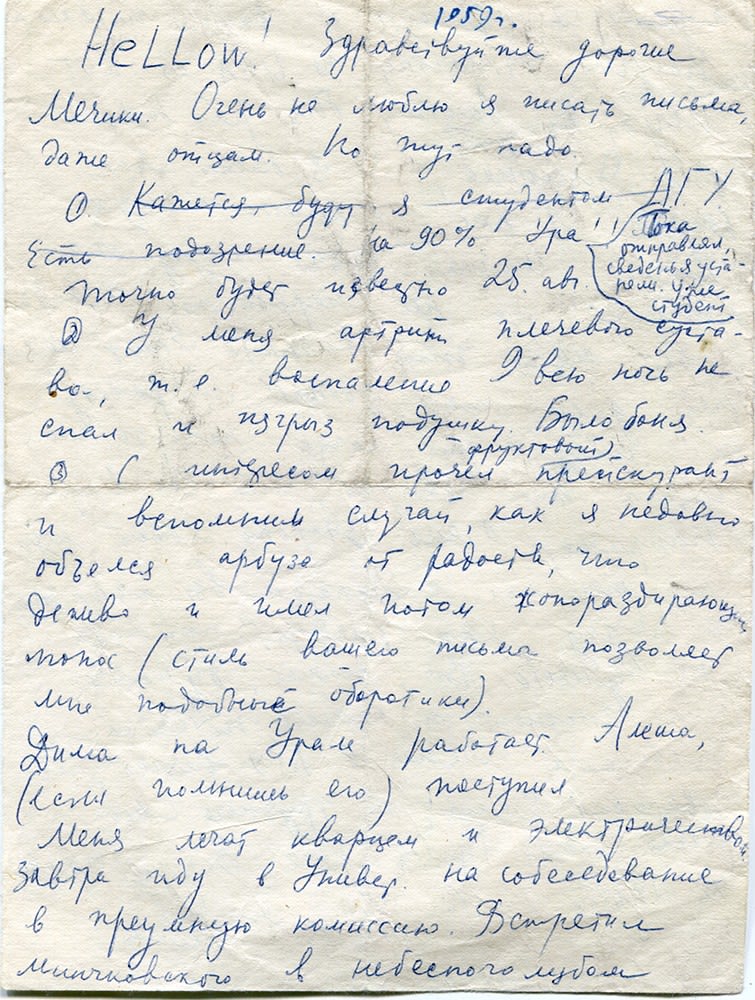 1959г.
HeLLow! Здравствуйте дорогие
Мечики. Очень не люблю я писать письма,
даже отцам. Но тут надо.
①. Кажется, буду я студентом ДГУ.
Есть подозрение. На 90%. Ура!!
Пока
отправлял,
сведенья уста-
рели. Уже
студент
Точно будет известно 25. авг.
② У меня артрит плечевого суста-
ва, т.е. воспаление Я всю ночь не
спал и изгрыз подушку. Было боня.
фруктовый)
③ С интересом прочел прейскурант
и вспомнил случай, как я недавно
объелся арбуза от радости, что
дешево и имел потом жопораздирающий
понос (стиль вашего письма позволяет
мне подобные оборотики).
Дима на Урале работает. Алеша,
(если помнишь его) поступил
Меня лечат кварцем и электричеством
Завтра иду в Универ. на собеседование
в преумную комиссию. Встретил
в небесноголубом